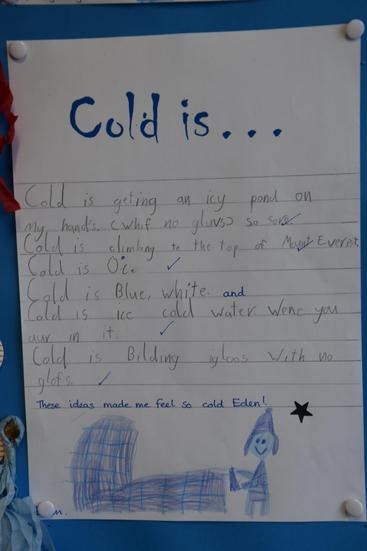 Cold is...
Cold is geting an icy pond on
my hands. (whif no gluvs) so sore
Cold is climbing to the top of Mount Everist.
Cold is 0°c.
Cold is Blue, white. and
Cold is ice cold water wene you
aur in it.
Cold is Bilding igloos with no
glofs.
These ideas made me feel so cold Eden!